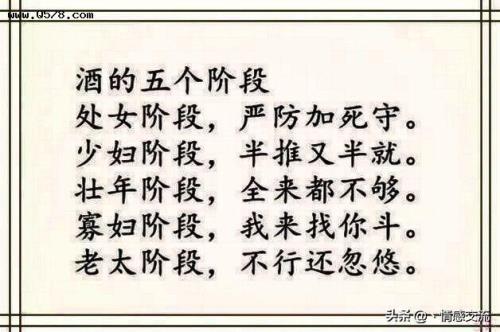 www.Q578.com
酒的五个阶段
处女阶段，严防加死守。
少妇阶段，半推又半就。
壮年阶段，全来都不够。
寡妇阶段，我来找你斗。
老太阶段，不行还忽悠。
头条@丶情感交流